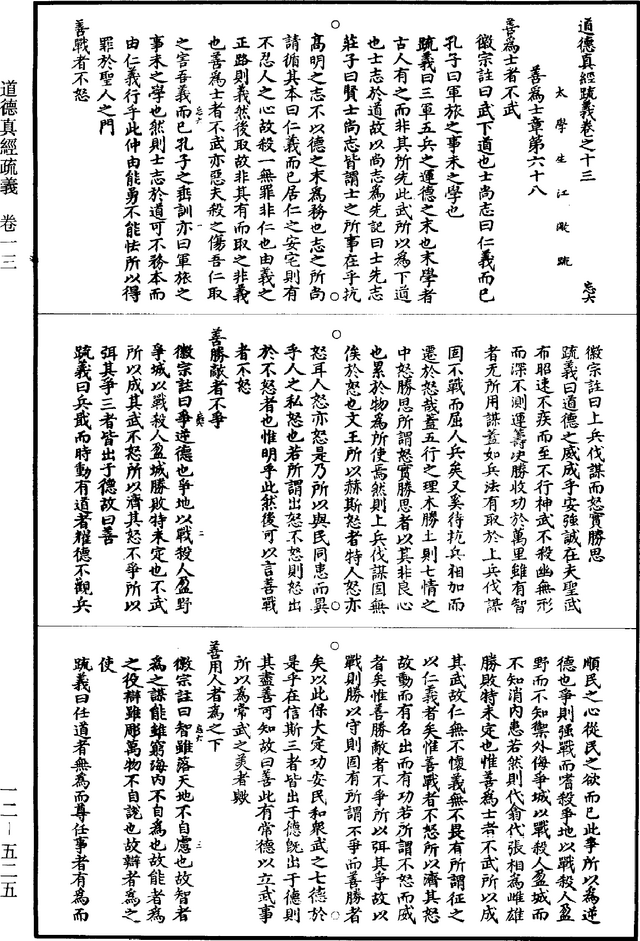 道德真經疏義卷之十三
忠六
太學生江澂疏
善為士章第六十八
善為士者不武
徽宗註曰武下道也士尚志曰仁義而已
孔子曰軍旅之事未之學也
疏義曰三軍五兵之運德之末也末學者
古人有之而非其所先此武所以為下道
也士志於道故以尚志為先記曰士先志
莊子曰賢士尚志皆謂士之所事在乎抗
高明之志不以德之末為務也志之所尚
請循其本曰仁義而已居仁之安宅則有
不忍人之心故殺一無罪非仁也由義之
正路則義然後取故非其有而取之非義
也善為士者不武亦惡夫殺之傷吾仁取
之害吾義而已孔子之垂訓亦曰軍旅之
事未之學也然則士志於道可不務本而
由仁義行乎此仲由能勇不能怯所以得
罪於聖人之門
善戰者不怒
徽宗註曰上兵伐謀而怒實勝思
疏義曰道德之威成乎安強誠在夫聖武
布昭速不疾而至不行神武不殺幽無形
而深不測運籌決勝收功於萬里雖有智
者無所用謀蓋如兵法有取於上兵伐謀
固不戰而屈人兵矣又奚待抗兵相加而
遷於怒哉蓋五行之理木勝土則七情之
中怒勝思所謂怒實勝思者以其非良心
也累於物為所使焉然則上兵伐謀固無
俟於怒也文王所以赫斯怒者特人怒亦
怒耳人怒亦怒是乃所以與民同患而異
乎人之私怒也若所謂出怒不怒則怒出
於不怒者也惟明乎此然後可以言善戰
者不怒
善勝敵者不爭
徽宗註曰爭逆德也爭地以戰殺人盈野
爭城以戰殺人盈城勝敗特未定也不武
所以成其武不怒所以濟其怒不爭所以
弭其爭三者皆出于德故曰善
疏義曰兵戢而時動有道者耀德不觀兵
順民之心從民之欲而已此事所以為逆
德也爭則強戰而嗜殺爭地以戰殺人盈
野而不知禦外侮爭城以戰殺人盈城而
不知消內患若然則代翕代張相為雌雄
勝敗特未定也惟善為士者不武所以成
其武故仁無不懷義無不畏有所謂征之
以仁義者矣惟善戰者不怒所以濟其怒
故動而有名出而有功若所謂不怒而威
者矣惟善勝敵者不爭所以弭其爭故以
戰則勝以守則固有所謂不爭而善勝者
矣以此保大定功安民和衆武之七德於
是乎在信斯三者皆出于德旣出于德則
其盡善可知故曰善此有常德以立武事
所以為常武之美者歟
善用人者為之下
徽宗註曰智雖落天地不自慮也故智者
為之謀能雖窮海內不自為也故能者為
之役辯雖彫萬物不自說也故辯者為之
使
疏義曰任道者無為而尊任事者有為而
道德真經疏義 卷一三
一二－五二五